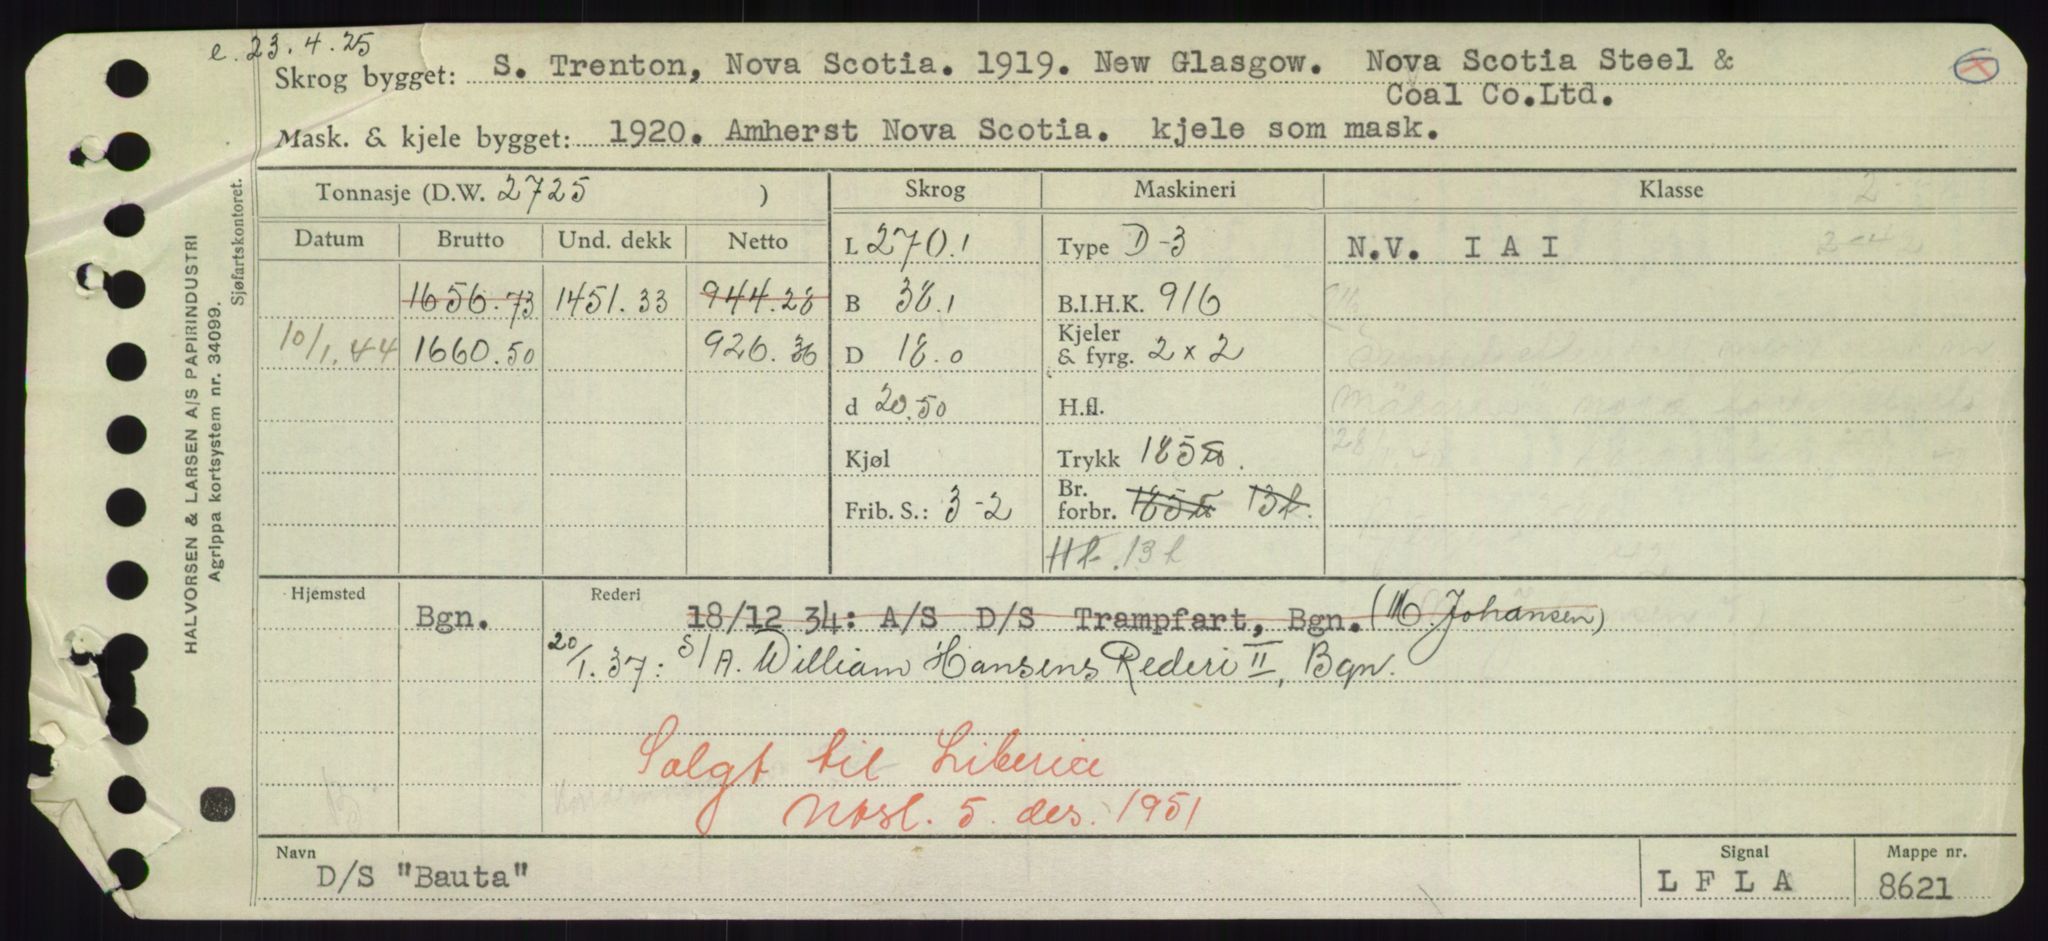 e. 23.4.25
Skrog bygget: S. Trenton, Nova Scotia. 1919. New Glasgow. Nova Scotia Steel &
Coal Co.Ltd.
Mask. & kjele bygget: 1920. Amherst Nova Scotia. kjele som mask.
HALVORSEN & LARSEN A/S PAPIRINDUSTRI
Agrippa kortsystem nr. 34099.
Sjøfartskontoret.
Tonnasje (D.W. 2725 ) Skrog Maskineri Klasse
Datum Brutto Und. dekk Netto L 270.1 Type D-3 N.V. I A I
1656.73 1451.33 944.28 B 38.1 B.I.H.K. 916
10/1.44 1660.50 926.36 D 18.0 Kjeler & fyrg. 2 x 2
d 20.50 H.fl.
Kjøl Trykk 185
Frib. S.: 3-2 Br. forbr. 185 13 t.
11 t. 13 t
Hjemsted Bgn. Rederi 18/12 34: A/S D/S Trampfart, Bgn. (M. Johansen)
20/1.37: S/A. William Hansens Rederi II, Bgn.
Solgt til Liberia
Nosl. 5. des. 1951
Navn Signal Mappe nr.
D/S "Bauta" L F L A 8621